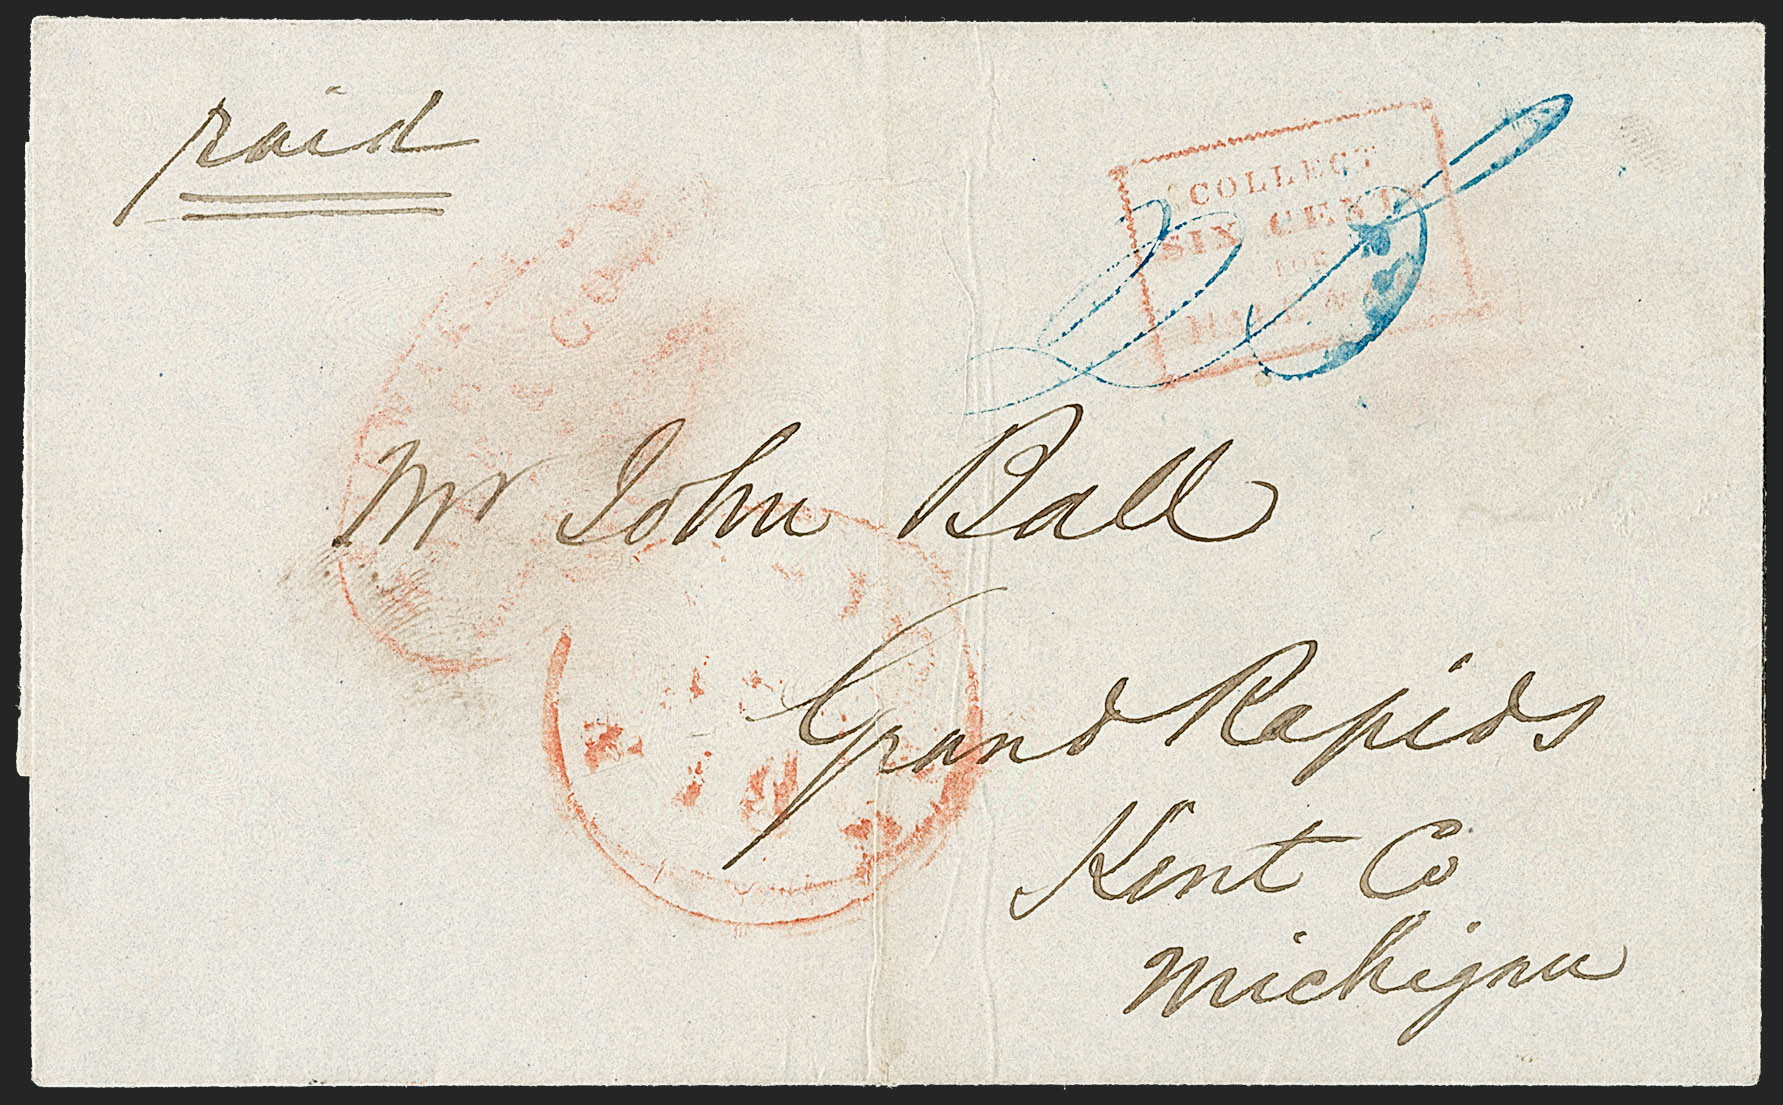 paid
COLLECT
SIX CENTS
FOR
25
Mr John Ball
Grand Rapids
Kent Co
Michigan